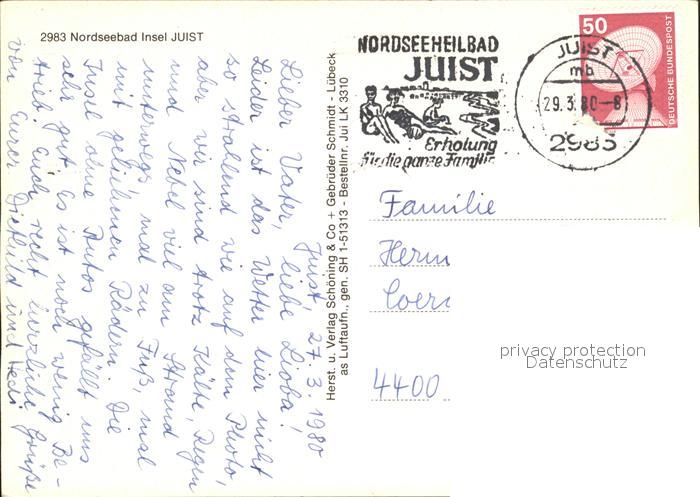 2983 Nordseebad Insel JUIST
Juist, 27.3.1980
Lieber Vater, liebe Lioba!
Leider ist das Wetter hier nicht
so strahlend wie auf dem Photo,
aber wir sind trotz Kälte, Regen
und Nebel viel am Strand
unterwegs mal zu Fuß, mal
mit geliehenen Rädern. Die
Insel ohne Autos gefällt uns
sehr gut. Es ist noch wenig Be-
trieb. Euch recht herzliche Grüße
von Eurer Diethild und Hedi
Herst. u. Verlag Schöning & Co + Gebrüder Schmidt - Lübeck
as Luftaufn., gen. SH 1-51313 - Bestellnr. Jui LK 3310
NORDSEEHEILBAD
JUIST
Erholung
für die ganze Familie
JUIST
mb
29.3.80-8
2983
50
DEUTSCHE BUNDESPOST
Familie
Herm
4400
privacy protection
Datenschutz